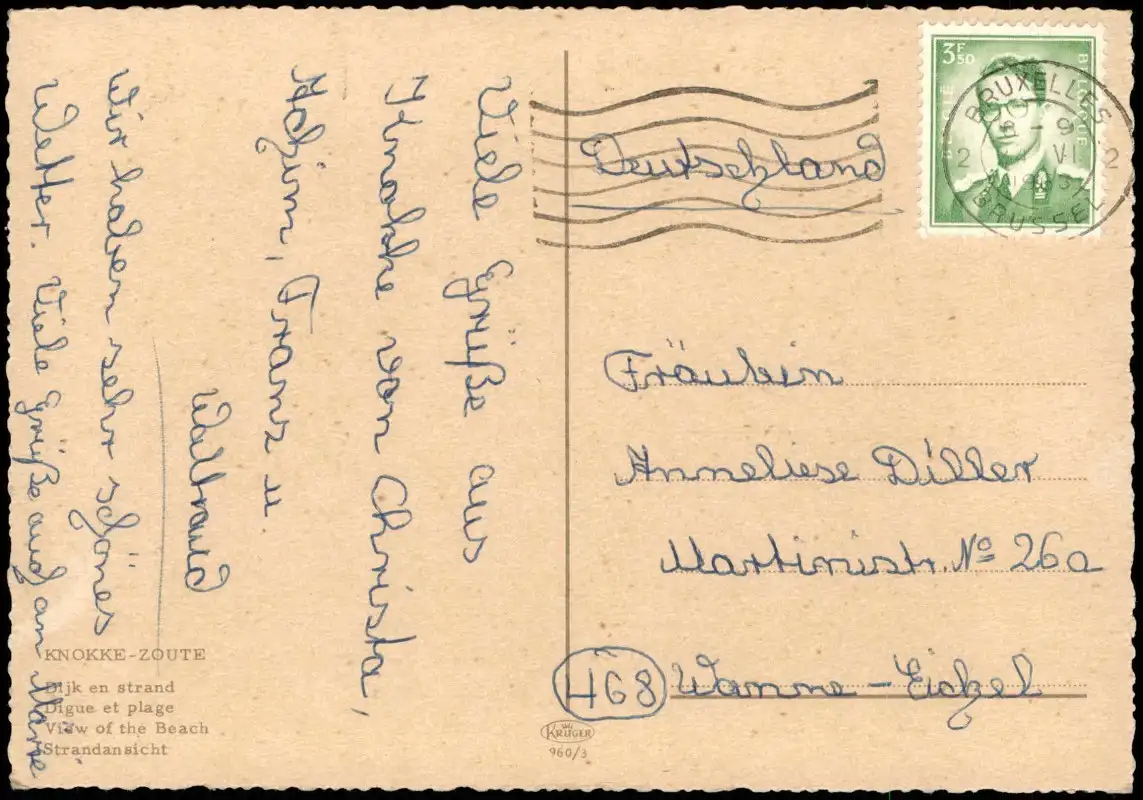 Viele Grüße aus
Knokke von Christa,
Achim, Franz u.
Waltraud
Wir haben sehr schönes
Wetter. Viele Grüße auch an Marie
KNOKKE-ZOUTE
Dijk en strand
Digue et plage
View of the Beach
Strandansicht
KRÜGER
960/3
3F50
BELGIE BELGIQUE
BRUXELLES
2 VI 2
BRUSSEL
Deutschland
Fräulein
Anneliese Diller
Martinistr. No 26a
468 Wanne-Eickel